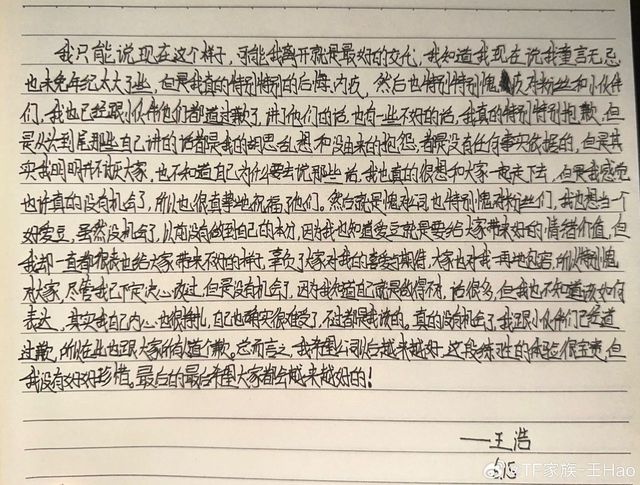 我只能说现在这个样子，可能我离开就是最好的交代，我知道我现在说我童言无忌
也未免年纪太大了些，但是我真的特别特别的后悔、内疚，然后也特别特别愧疚对粉丝和小伙伴
们，我也已经跟小伙伴他们都道过歉了，讲了他们的话，也有一些不好的话，我真的特别特别抱歉，但
是从头到尾那些自己讲的话都是我的胡思乱想和没由来的抱怨，都是没有任何事实依据的，但是其
实我明明并不讨厌大家，也不知道自己为什么要去说那些话，我也真的很想和大家一起走下去，但是我感觉
也许真的没有机会了，所以也很真挚地祝福了他们。然后就是愧对公司也特别愧对粉丝们，我也想当个
好爱豆，虽然没机会了，以前没有做到自己的本分，因为我也知道爱豆就是要给大家带来好的情绪价值，但
我却一直都很丧也给大家带来不好的榜样，辜负了大家对我的喜爱与期待，大家也对我一再地包容，所以特别愧
对大家，尽管我已下定决心改过，但是没有机会了，因为我知道自己就是做得不好，话很多，但我也不知道该如何
表达，其实我自己内心也很挣扎，自己也确实很难受了，不过都是我该的。真的没有机会了，我跟小伙伴们已经道
过歉，所以在此也跟大家所有人道个歉。总而言之，我希望公司以后越来越好，这段练习生的体验很宝贵，但
我没有好好珍惜。最后的最后希望大家都会越来越好的！
——王浩
@TF家族-王Hao